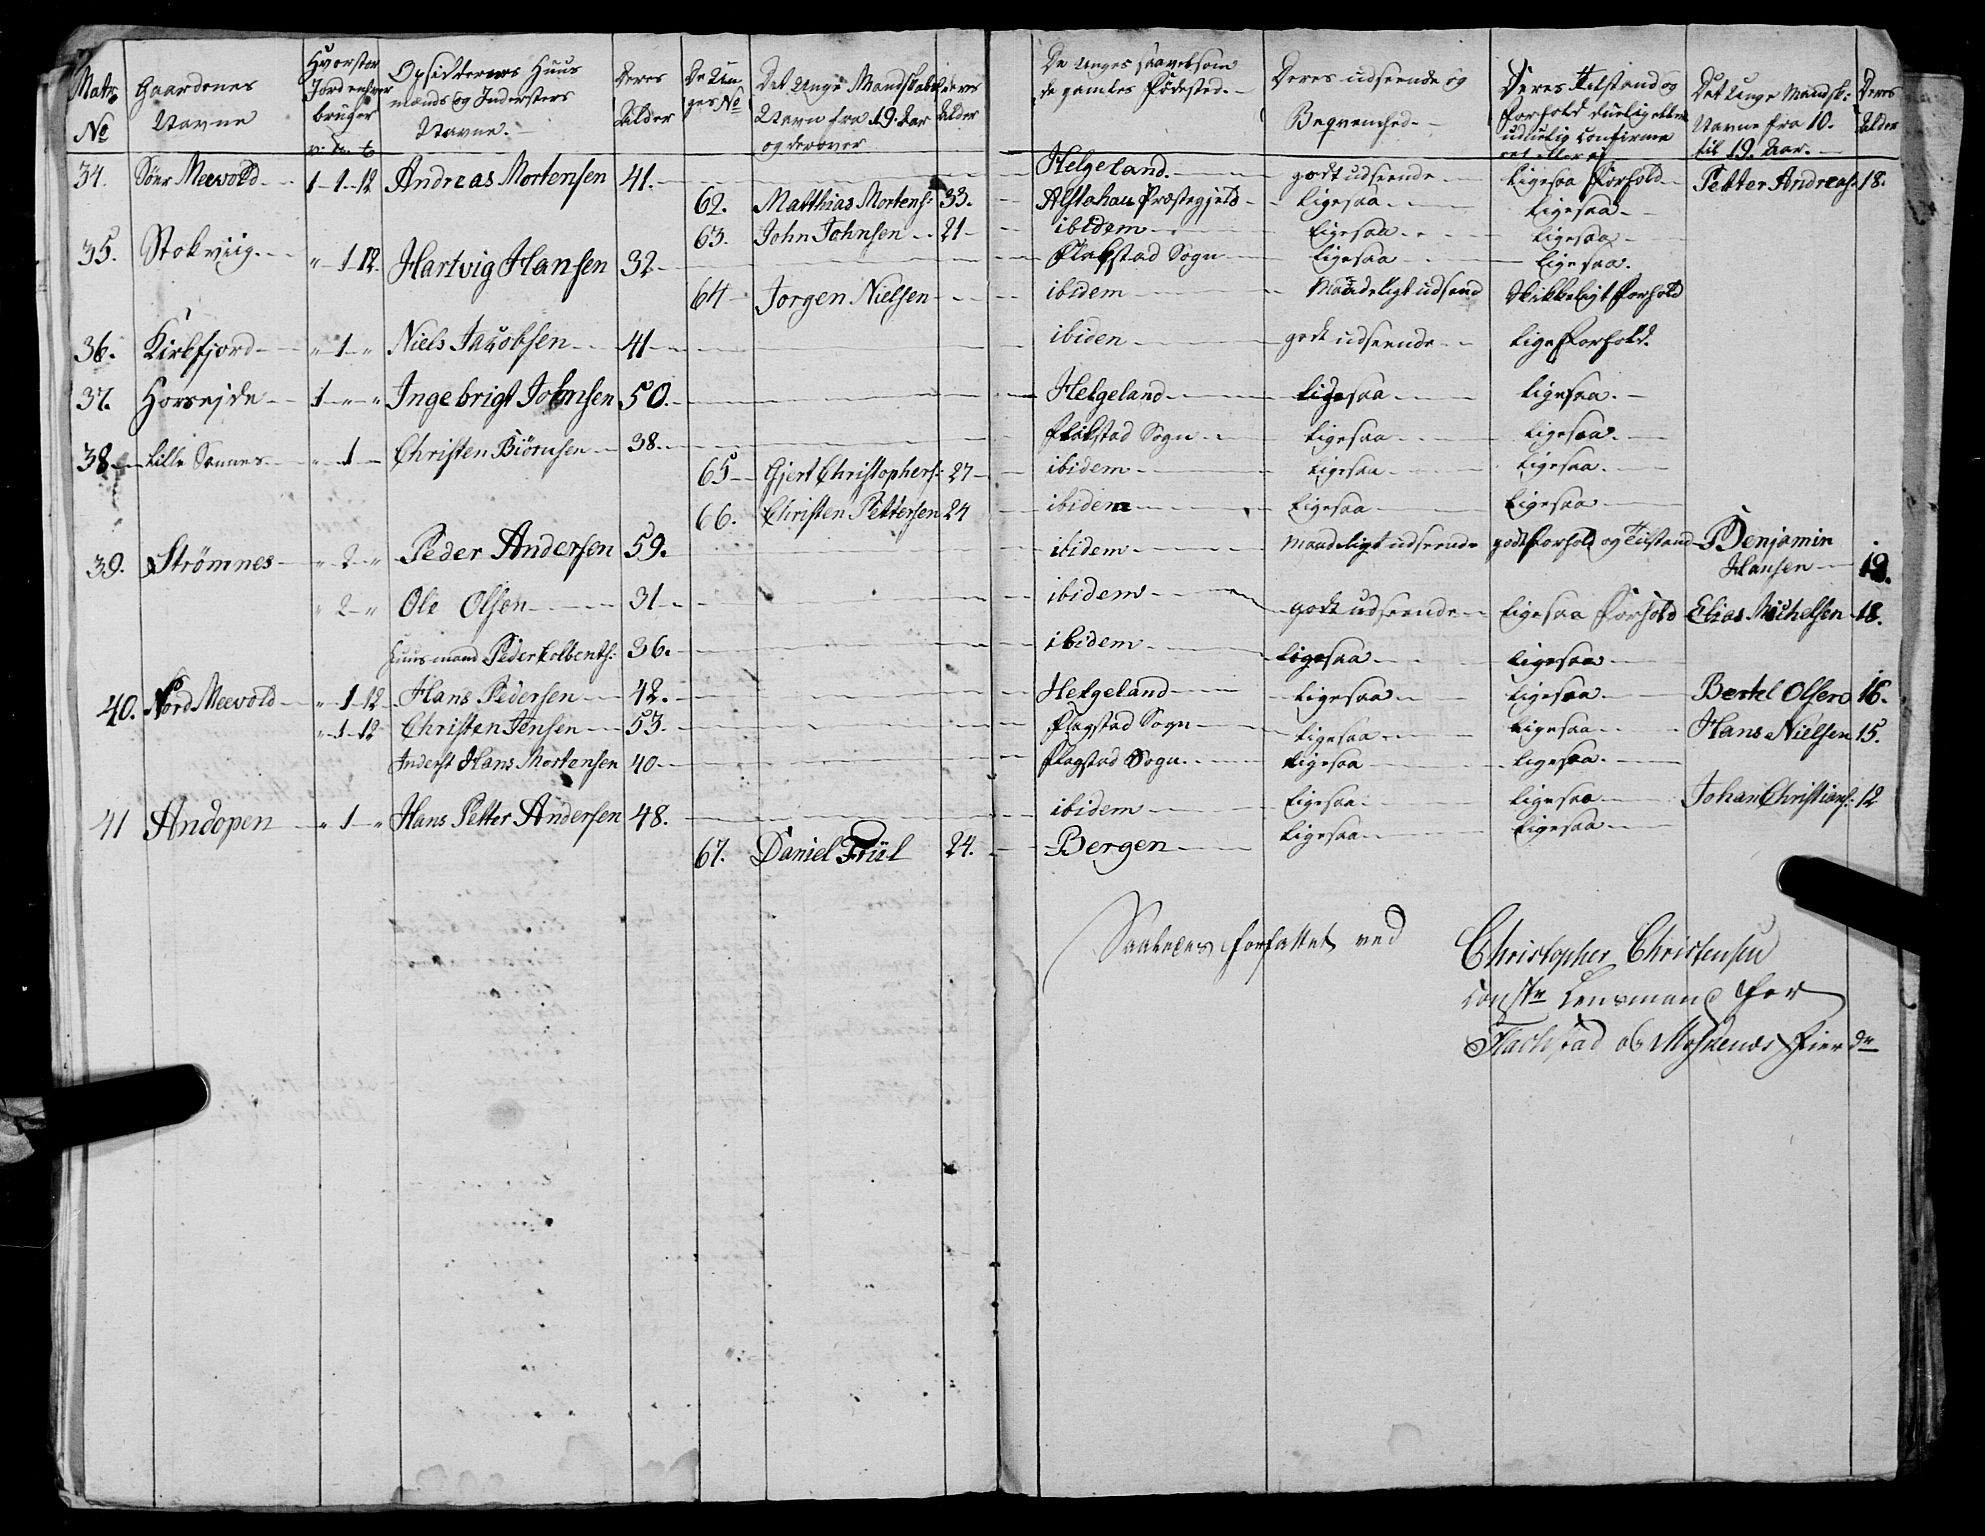 Matr. No
Gaardenes Navne
Hvor stor Jord enhver brüger v. p. t
Opsiddernes Huus mænds og Indersters Navne.
Deres Alder
De Un ges No
Det Unge Mandskabs Navn fra 19. Aar og derover
deres Alder
De Unges saavelsom de gamles Fødested.
Deres udseende og Beqvemhed.
Deres Tilstand og Forhold duelig eller uduelig Confirme ret eller ej
Det Unge Mandsk: Navne fra 10. til 19. Aar.
Deres Alder
34. Sönr Meevold 1-1-12 Andreas Mortensen 41. Helgeland. godt udseende ligesaa Forhold Petter Andreas: 18.
62. Matthias Mortens: 33. Alstahau Præstegjeld ligesaa ligesaa
63. John Johnsen 21 ibidem ligesaa ligesaa
35. Stokviig. " 1-12. Hartvig Hansen 32 Flagstad Sogn ligesaa ligesaa.
64 Jorgen Nielsen ibidem Maadeligt udseend skikkeligt Forhold
36. Kirkfjord " 1 " Niels Jacobsen 41 ibiden godt udseende lige Forhold.
37. Horsejde 1 " " Ingebrigt Johnsen 50. Helgeland ligesaa ligesaa.
38. Lille Sannes " 1 Christen Biörnsen 38. Flakstad Sogn ligesaa ligesaa.
65 Gjert Christophers: 27 ibidem ligesaa ligesaa.
66. Christen Pettersen 24 ibidem ligesaa ligesaa
39. Strömnes " 2 " Peder Andersen 59. ibidem maadeligt udseende godt Forhold og Tilstand Benjamin Hansen 19.
" 2 " Ole Olsen 31 ibidem godt udseende ligesaa Forhold Elias Michelsen 18.
Huusmand Peder Colbents: 36. ibidem ligesaa ligesaa
40. Nord Meevold " 1-12 Hans Pedersen 42. Helgeland ligesaa ligesaa Bertel Olsen 16.
" 1-12 Christen Jensen 53. Flagstad Sogn ligesaa ligesaa Hans Nielsen 15.
Inderst Hans Mortensen 40 Flagstad Sogn. ligesaa ligesaa.
41 Andopen " 1 " Hans Petter Andersen 48. ibidem ligesaa ligesaa Johan Christians: 12
67. Daniel Früel 24. Bergen ligesaa ligesaa
Saaledes forfattet ved Christopher Christensen
Constr Lensmand for
Flachstad og Moskenæs Fierdr